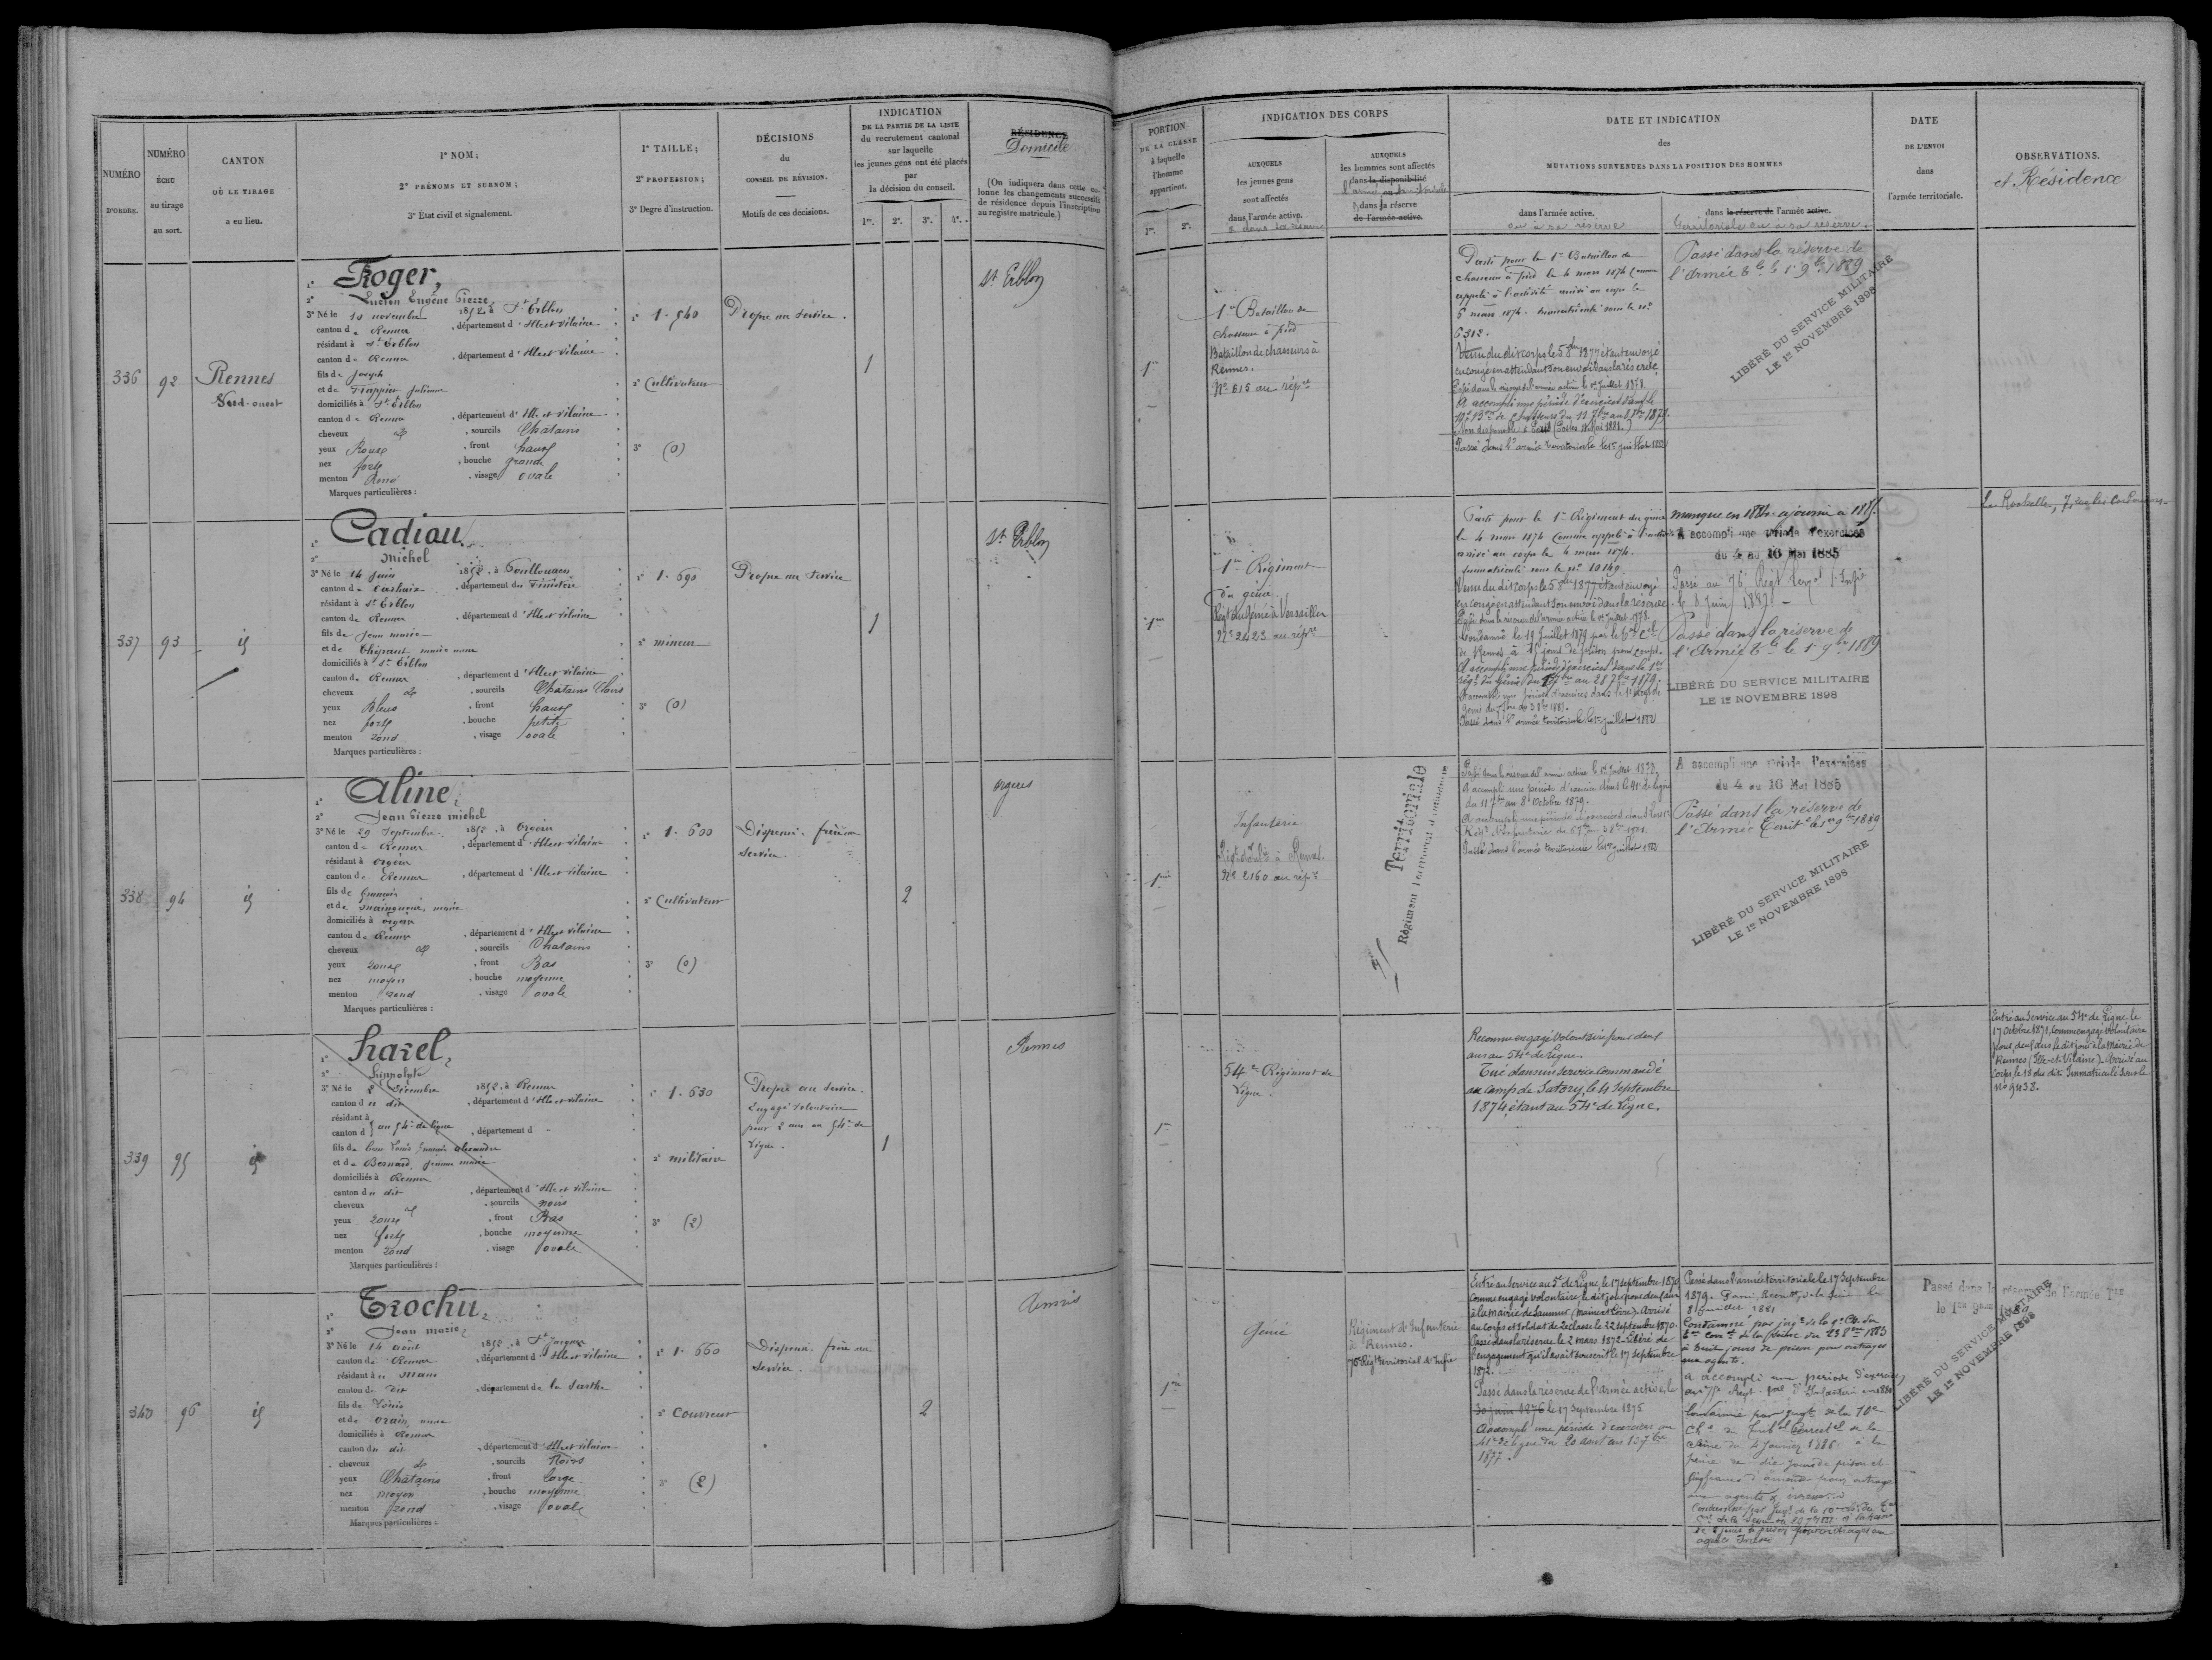 NUMÉRO
D'ORDRE.
NUMÉRO
ÉCHU
au tirage
au sort.
CANTON
OÙ LE TIRAGE
a eu lieu.
1° NOM;
2° PRÉNOMS ET SURNOM;
3° État civil et signalement.
1° TAILLE;
2° PROFESSION;
3° Degré d'instruction.
DÉCISIONS
du
CONSEIL DE RÉVISION.
Motifs de ces décisions.
INDICATION
DE LA PARTIE DE LA LISTE
du recrutement cantonal
sur laquelle
les jeunes gens ont été placés
par
la décision du conseil.
1re. 2e. 3e. 4e.
RÉSIDENCE
Domicile
(On indiquera dans cette co-
lonne les changements successifs
de résidence depuis l'inscription
au registre matricule.)
336
92
Rennes
Sud-ouest
1° Roger,
2° Lucien Eugène Pierre,
3° Né le 10 novembre 1852, à St Erblon
canton de Rennes, département d'Ille et vilaine
résidant à St Erblon
canton de Rennes, département d'Ille et vilaine
fils de Joseph
et de Frappier
domiciliés à St Erblon
canton de Rennes, département d'Ille et vilaine
cheveux et, sourcils Chatains
yeux Roux, front haut
nez fort, bouche grande
menton Rond, visage ovale
Marques particulières :
1° 1.540
2° Cultivateur
3° (0)
Propre au service.
1
St Erblon
337
93
id
1° Cadiou,
2° Michel
3° Né le 14 juin 1852, à Poullouaen
canton de Carhaix, département du Finistère
résidant à St Erblon
canton de Rennes, département d'Ille et vilaine
fils de Jean marie
et de Thépaut marie anne
domiciliés à St Erblon
canton de Rennes, département d'Ille et vilaine
cheveux et, sourcils Chatains Clairs
yeux Bleus, front haut
nez fort, bouche petite
menton rond, visage ovale
Marques particulières :
1° 1.690
2° mineur
3° (0)
Propre au service
1
St Erblon
338
94
id
1° Aline,
2° Jean Pierre michel
3° Né le 29 Septembre 1852, à Orgères
canton de Rennes, département d'Ille et vilaine
résidant à Orgères
canton de Rennes, département d'Ille et vilaine
fils de François
et de marie
domiciliés à Orgères
canton de Rennes, département d'Ille et vilaine
cheveux et, sourcils Chatains
yeux roux, front Bas
nez moyen, bouche moyenne
menton rond, visage ovale
Marques particulières :
1° 1.600
2° Cultivateur
3° (0)
Dispensé. frère au
service.
2
orgères
339
95
id
1° Harel,
2° hippolyte
3° Né le 2 Décembre 1852, à Rennes
canton du dit, département d'Ille et vilaine
résidant à
canton d } au 54e de ligne, département d
fils de Louis François alexandre
et de Besnard, Jeanne marie
domiciliés à Rennes
canton du dit, département d'Ille et vilaine
cheveux et, sourcils noirs
yeux roux, front Bas
nez fort, bouche moyenne
menton rond, visage ovale
Marques particulières :
1° 1.630
2° militaire
3° (2)
Propre au service.
Engagé volontaire
pour 2 ans au 54e de
Ligne.
1
Rennes
340
96
id
1° Trochu,
2° Jean marie,
3° Né le 14 août 1852, à St Jacques
canton de Rennes, département d'Ille et vilaine
résidant au Mans
canton du Dit, département de la Sarthe
fils de Louis
et de Orain, anne
domiciliés à Rennes
canton du dit, département d'Ille et vilaine
cheveux et, sourcils Noirs
yeux Chatains, front large
nez moyen, bouche moyenne
menton rond, visage ovale
Marques particulières :
1° 1.660
2° Couvreur
3° (2)
Dispensé. frère au
service.
2
Rennes
PORTION
DE LA CLASSE
à laquelle
l'homme
appartient.
1re. 2e.
INDICATION DES CORPS
AUXQUELS
les jeunes gens
sont affectés
dans l'armée active.
& dans sa réserve
AUXQUELS
les hommes sont affectés
dans la disponibilité
l'armée territoriale
ou dans la réserve
de l'armée active.
DATE ET INDICATION
des
MUTATIONS SURVENUES DANS LA POSITION DES HOMMES
dans l'armée active.
ou à sa réserve
dans la réserve de l'armée active.
territoriale ou à sa réserve.
DATE
DE L'ENVOI
dans
l'armée territoriale.
OBSERVATIONS.
et Résidence
1re
1er Bataillon de
chasseurs à pied
Bataillon de chasseurs à
Rennes.
N° 615 au répre
Parti pour le 1er Bataillon de
chasseurs à pied le 4 mars 1874 comme
appelé à l'activité arrivé au corps le
6 mars 1874. immatriculé sous le n°
6312.
Venu du dit corps le 5 8bre 1877 étant envoyé
en congé en attendant son envoi dans la réserve.
Passé dans la réserve de l'armée active le 1er Juillet 1878.
A accompli une période d'exercices dans le
Passé dans l'armée territoriale le 1er juillet 1883
Passé dans la réserve de
l'Armée Tle le 1er 9bre 1889
LIBÉRÉ DU SERVICE MILITAIRE
LE 1er NOVEMBRE 1898
1re
1er Régiment
du génie.
Régt du Génie à Versailles
N° 2423 au répre
Parti pour le 1er Régiment du génie
le 4 mars 1874 comme appelé à l'activité
arrivé au corps le 4 mars 1874.
immatriculé sous le n° 10140.
Venu du dit corps le 5 8bre 1877 étant envoyé
en congé en attendant son envoi dans la réserve.
Passé dans la réserve de l'armée active le 1er juillet 1878.
Condamné le 19 Juillet 1879 par le
de Rennes, à 15 jours de prison pour coups.
A accompli une période d'exercices dans le 1er
régt du Génie du 1er 7bre au 28 7bre 1879.
Passé dans l'armée territoriale le 1er juillet 1883
manqué en 1884. ajourné à 1885.
A accompli une période d'exercices
du 4 au 16 Mai 1885
Passé au 76e Régt Territ d'Infie
le 8 Juin 1887
Passé dans la réserve de
l'Armée Tle le 1er 9bre 1889
LIBÉRÉ DU SERVICE MILITAIRE
LE 1er NOVEMBRE 1898
La Rochelle, 7, rue des Cordeliers
1re
Infanterie
Régt d'Infie à Rennes.
N° 2160 au répre
Territoriale
Passé dans la réserve de l'armée active le 1er Juillet 1878.
A accompli une période d'exercices dans le 41e de ligne
du 11 7bre au 8 Octobre 1879.
Passé dans l'armée territoriale le 1er juillet 1883
A accompli une période d'exercices
du 4 au 16 Mai 1885
Passé dans la réserve de
l'Armée Territle le 1er 9bre 1889
LIBÉRÉ DU SERVICE MILITAIRE
LE 1er NOVEMBRE 1898
1re
54e Régiment de
Ligne.
Reconnu engagé volontaire pour deux
ans au 54e de Ligne.
Tué dans un service commandé
au camp de Satory, le 4 Septembre
1874, étant au 54e de Ligne.
Entré au Service au 54e de Ligne le
17 Octobre 1871, comme engagé volontaire
pour deux ans le dit jour à la Mairie de
Rennes (Ille-et-Vilaine). Arrivé au
Corps le 18 du dit. Immatriculé sous le
N° 9438.
1re
Génie
Régiment d'Infanterie
à Rennes.
75e Régt territorial d'Infie
Entré au Service au 5e de Ligne, le 17 septembre 1870
comme engagé volontaire, le dit jour pour deux ans
à la mairie de Saumur, (Maine et Loire). Arrivé
au corps et soldat de 2e classe le 22 septembre 1870.
Passé dans la réserve le 2 mars 1872. Libéré de
l'engagement qu'il avait souscrit le 17 septembre
1872.
Passé dans la réserve de l'armée active, le
30 juin 1876 le 17 Septembre 1875
Accompli une période d'exercices au
41e de ligne du 20 août au 17 7bre
1877.
Passé dans l'armée territoriale le 17 Septembre
1879.
Condamné par jugt de la 9e Ch. du
à huit jours de prison pour outrages
aux agents.
A accompli une période d'exercices
Condamné par jugt de la 10e
Ch. du Tribal Correctel de la
Seine du 4 Janvier 1886 à la
peine de dix jours de prison et
cinq francs d'amende pour outrage
aux agents & ivresse
Passé dans la réserve de l'armée Tale
LIBÉRÉ DU SERVICE MILITAIRE
LE 1er NOVEMBRE 1898